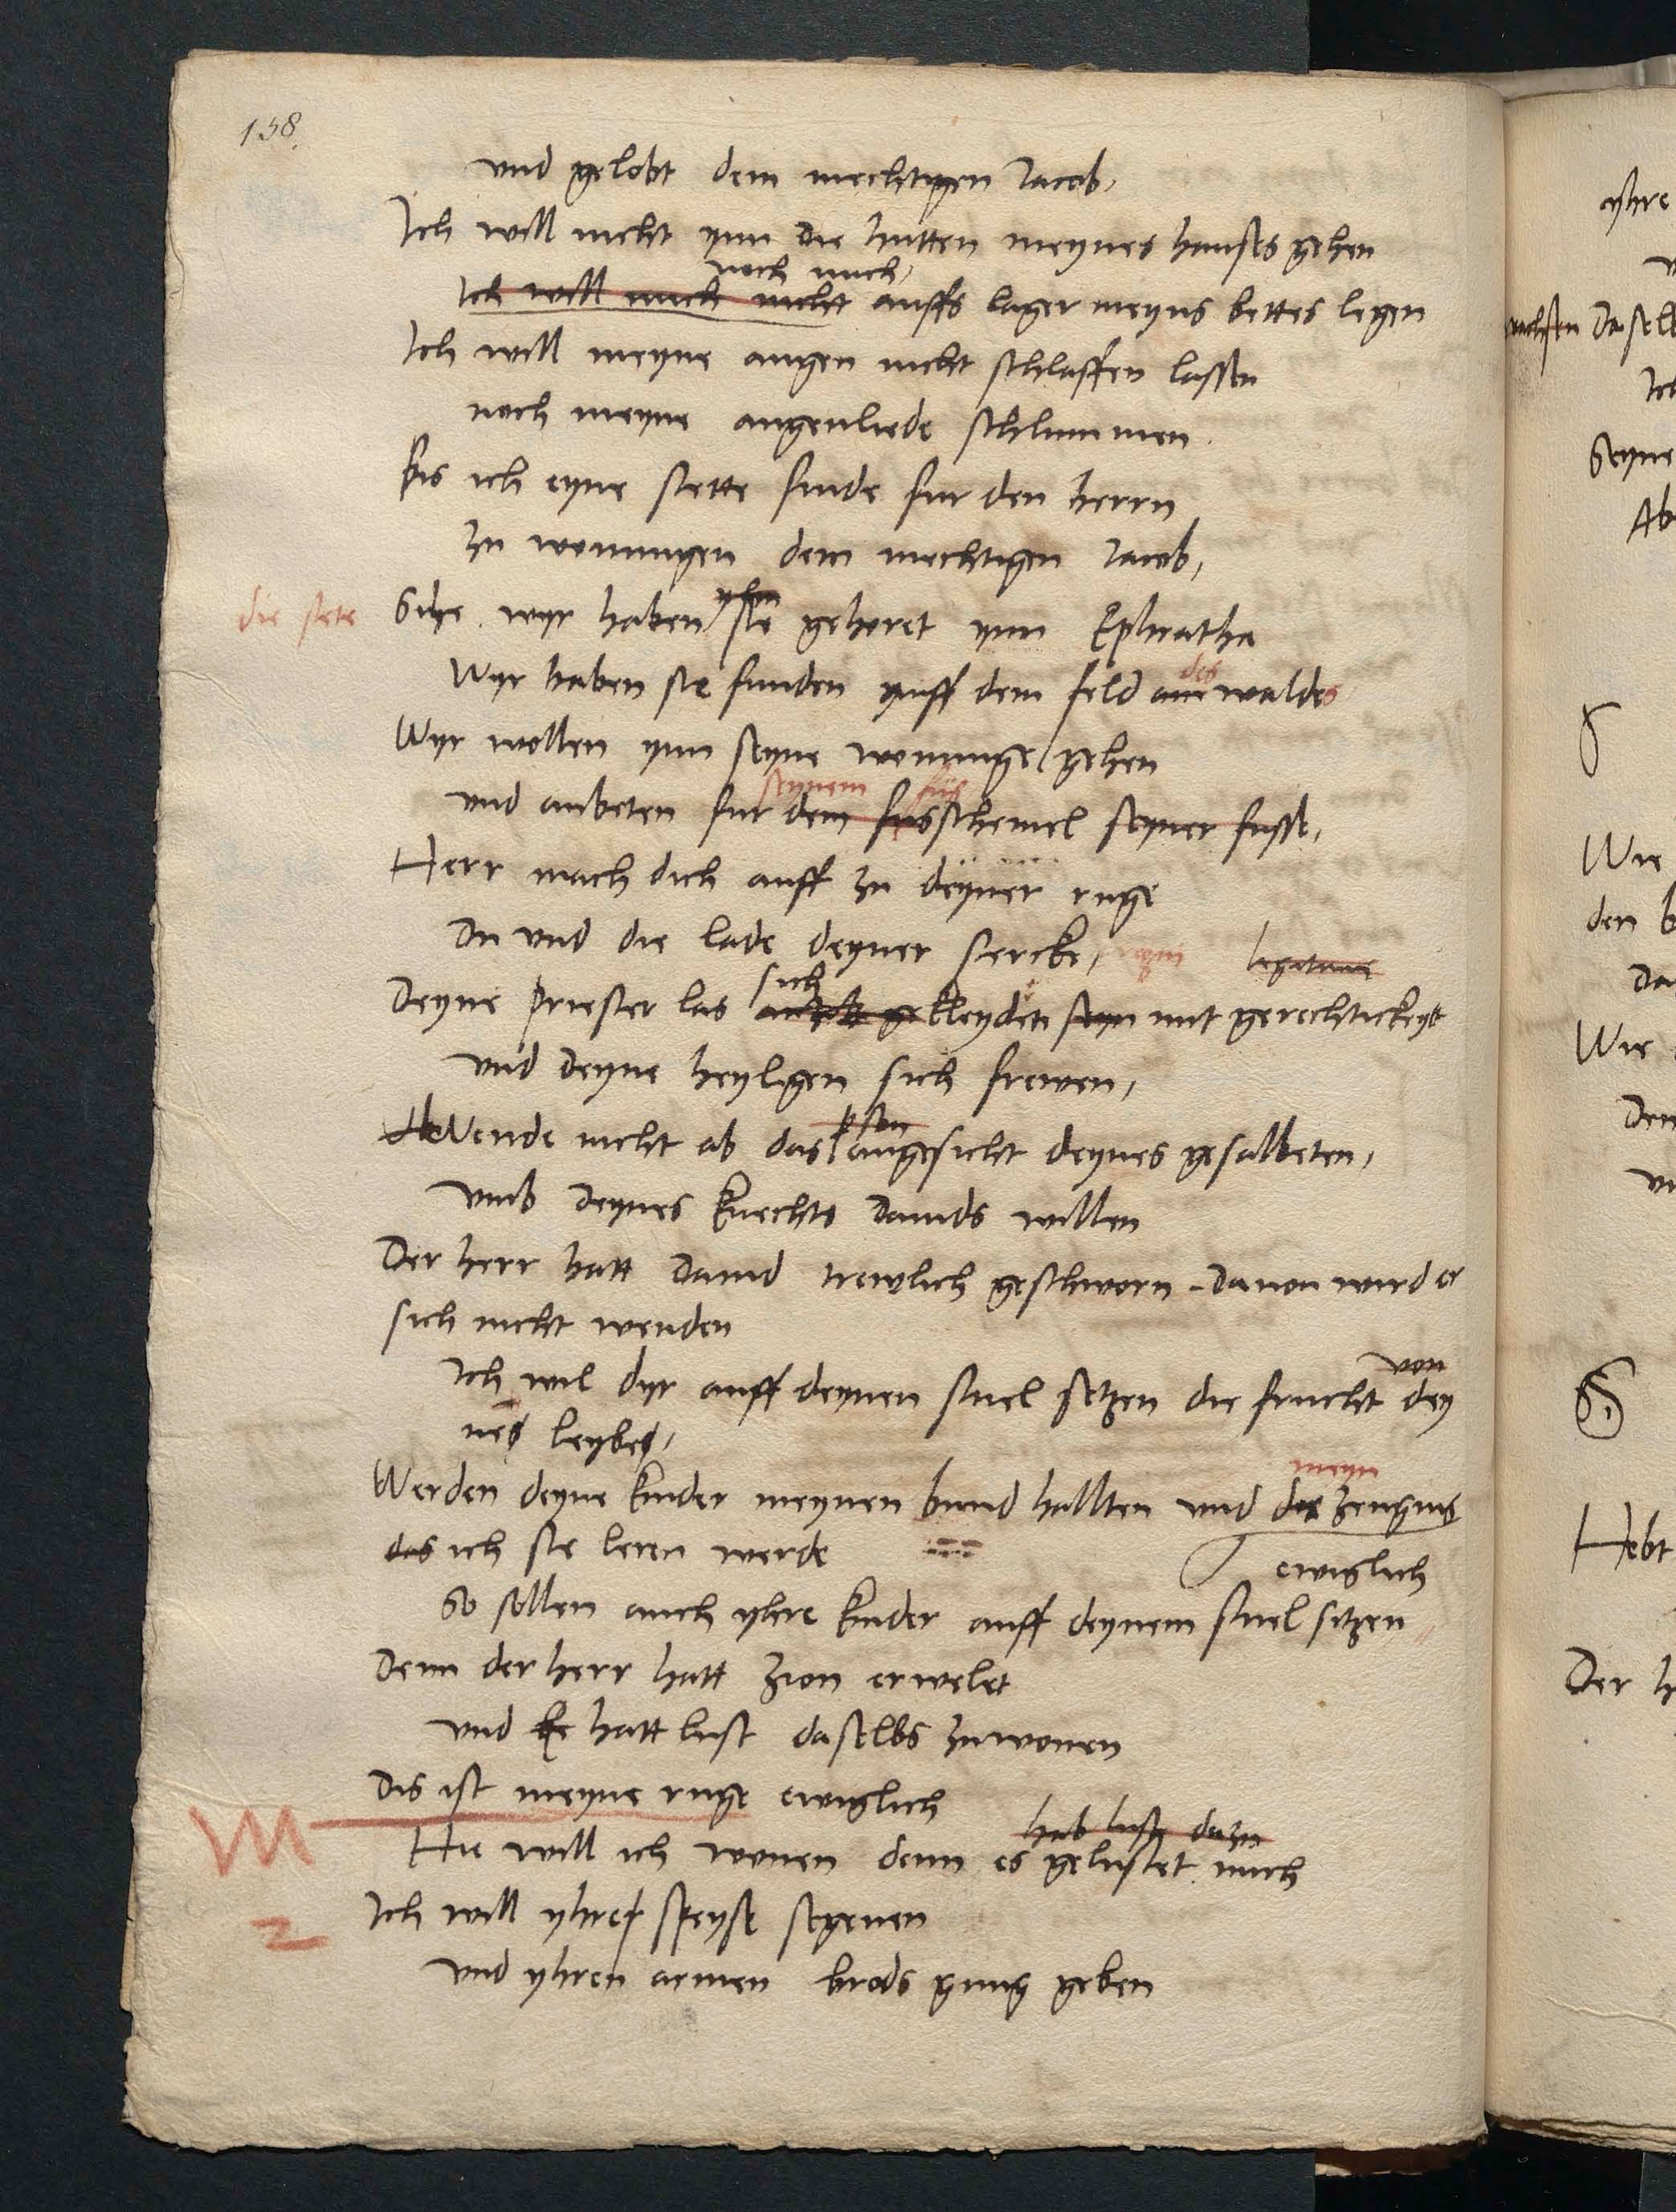 158.
vnd gelobt dem mechtigen Jacob,
Ich will nicht ynn die hutten meynes hauses gehen
noch mich,
Ich will mich nicht auffs lager meyns bettes legen
Ich will meyne augen nicht schlaffen lassen
noch meyne augenliede schlummen
Bis ich eyne stette finde fur den herrn
zu wonungen dem mechtigen Jacob,
die stete Sihe wyr haben sie gehoret ynn Ephratha
Wyr haben sie funden auff dem feld des waldes
Wyr wollen ynn seyne wonunge gehen
seynem fus
vnd anbeten fur dem fusschemel seyner fusse,
Herr mach dich auff zu deyner ruge
Du vnd die lade deyner stercke,
sich
Deyne Priester las kleyden seyn mit gerechtickeyt
Vnd deyne heyligen sich frewen,
Wende nicht ab das angesicht deynes gesalbeten,
Vmb deynes knechts Dauids willen
Der herr hatt Dauid trewlich geschworn dauon wird er
sich nicht wenden
von
Ich wil dyr auff deynen stuel setzen die frucht dey
nes leybes,
meyn
Werden deyne kinder meynen bund hallten vnd die zeugnis
das ich sie leren werde
ewiglich
So sollen auch yhre kinder auff deynem stuel sitzen
Denn der herr hatt Zion erwelet
vnd hatt lust daselbs zu wonen
Dis ist meyne ruge ewiglich
hab lust dazu
Hie will ich wonen denn es gelustet mich
Ich will yhre speyse segenen
vnd yhren armen brods gnug geben